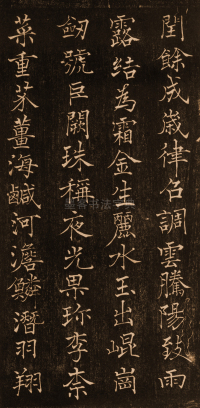 閏餘成歲律召調雲騰陽致雨
露結為霜金生麗水玉出崐崗
劒號巨闕珠稱夜光果珍李柰
菜重芥薑海鹹河澹鱗潛羽翔